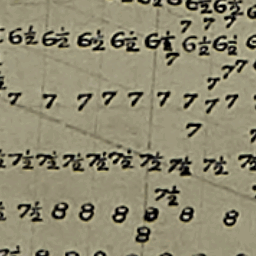 7 7 7
6½ 6½ 6½ 6½ 6½ 6½ 6½
7
7 7 7
7 7 7 7 7 7 7 7 7 7
7
7½ 7½ 7½ 7½ 7½ 7½ 7½ 7½
7½
7½ 8 8 8 8 8 8
8